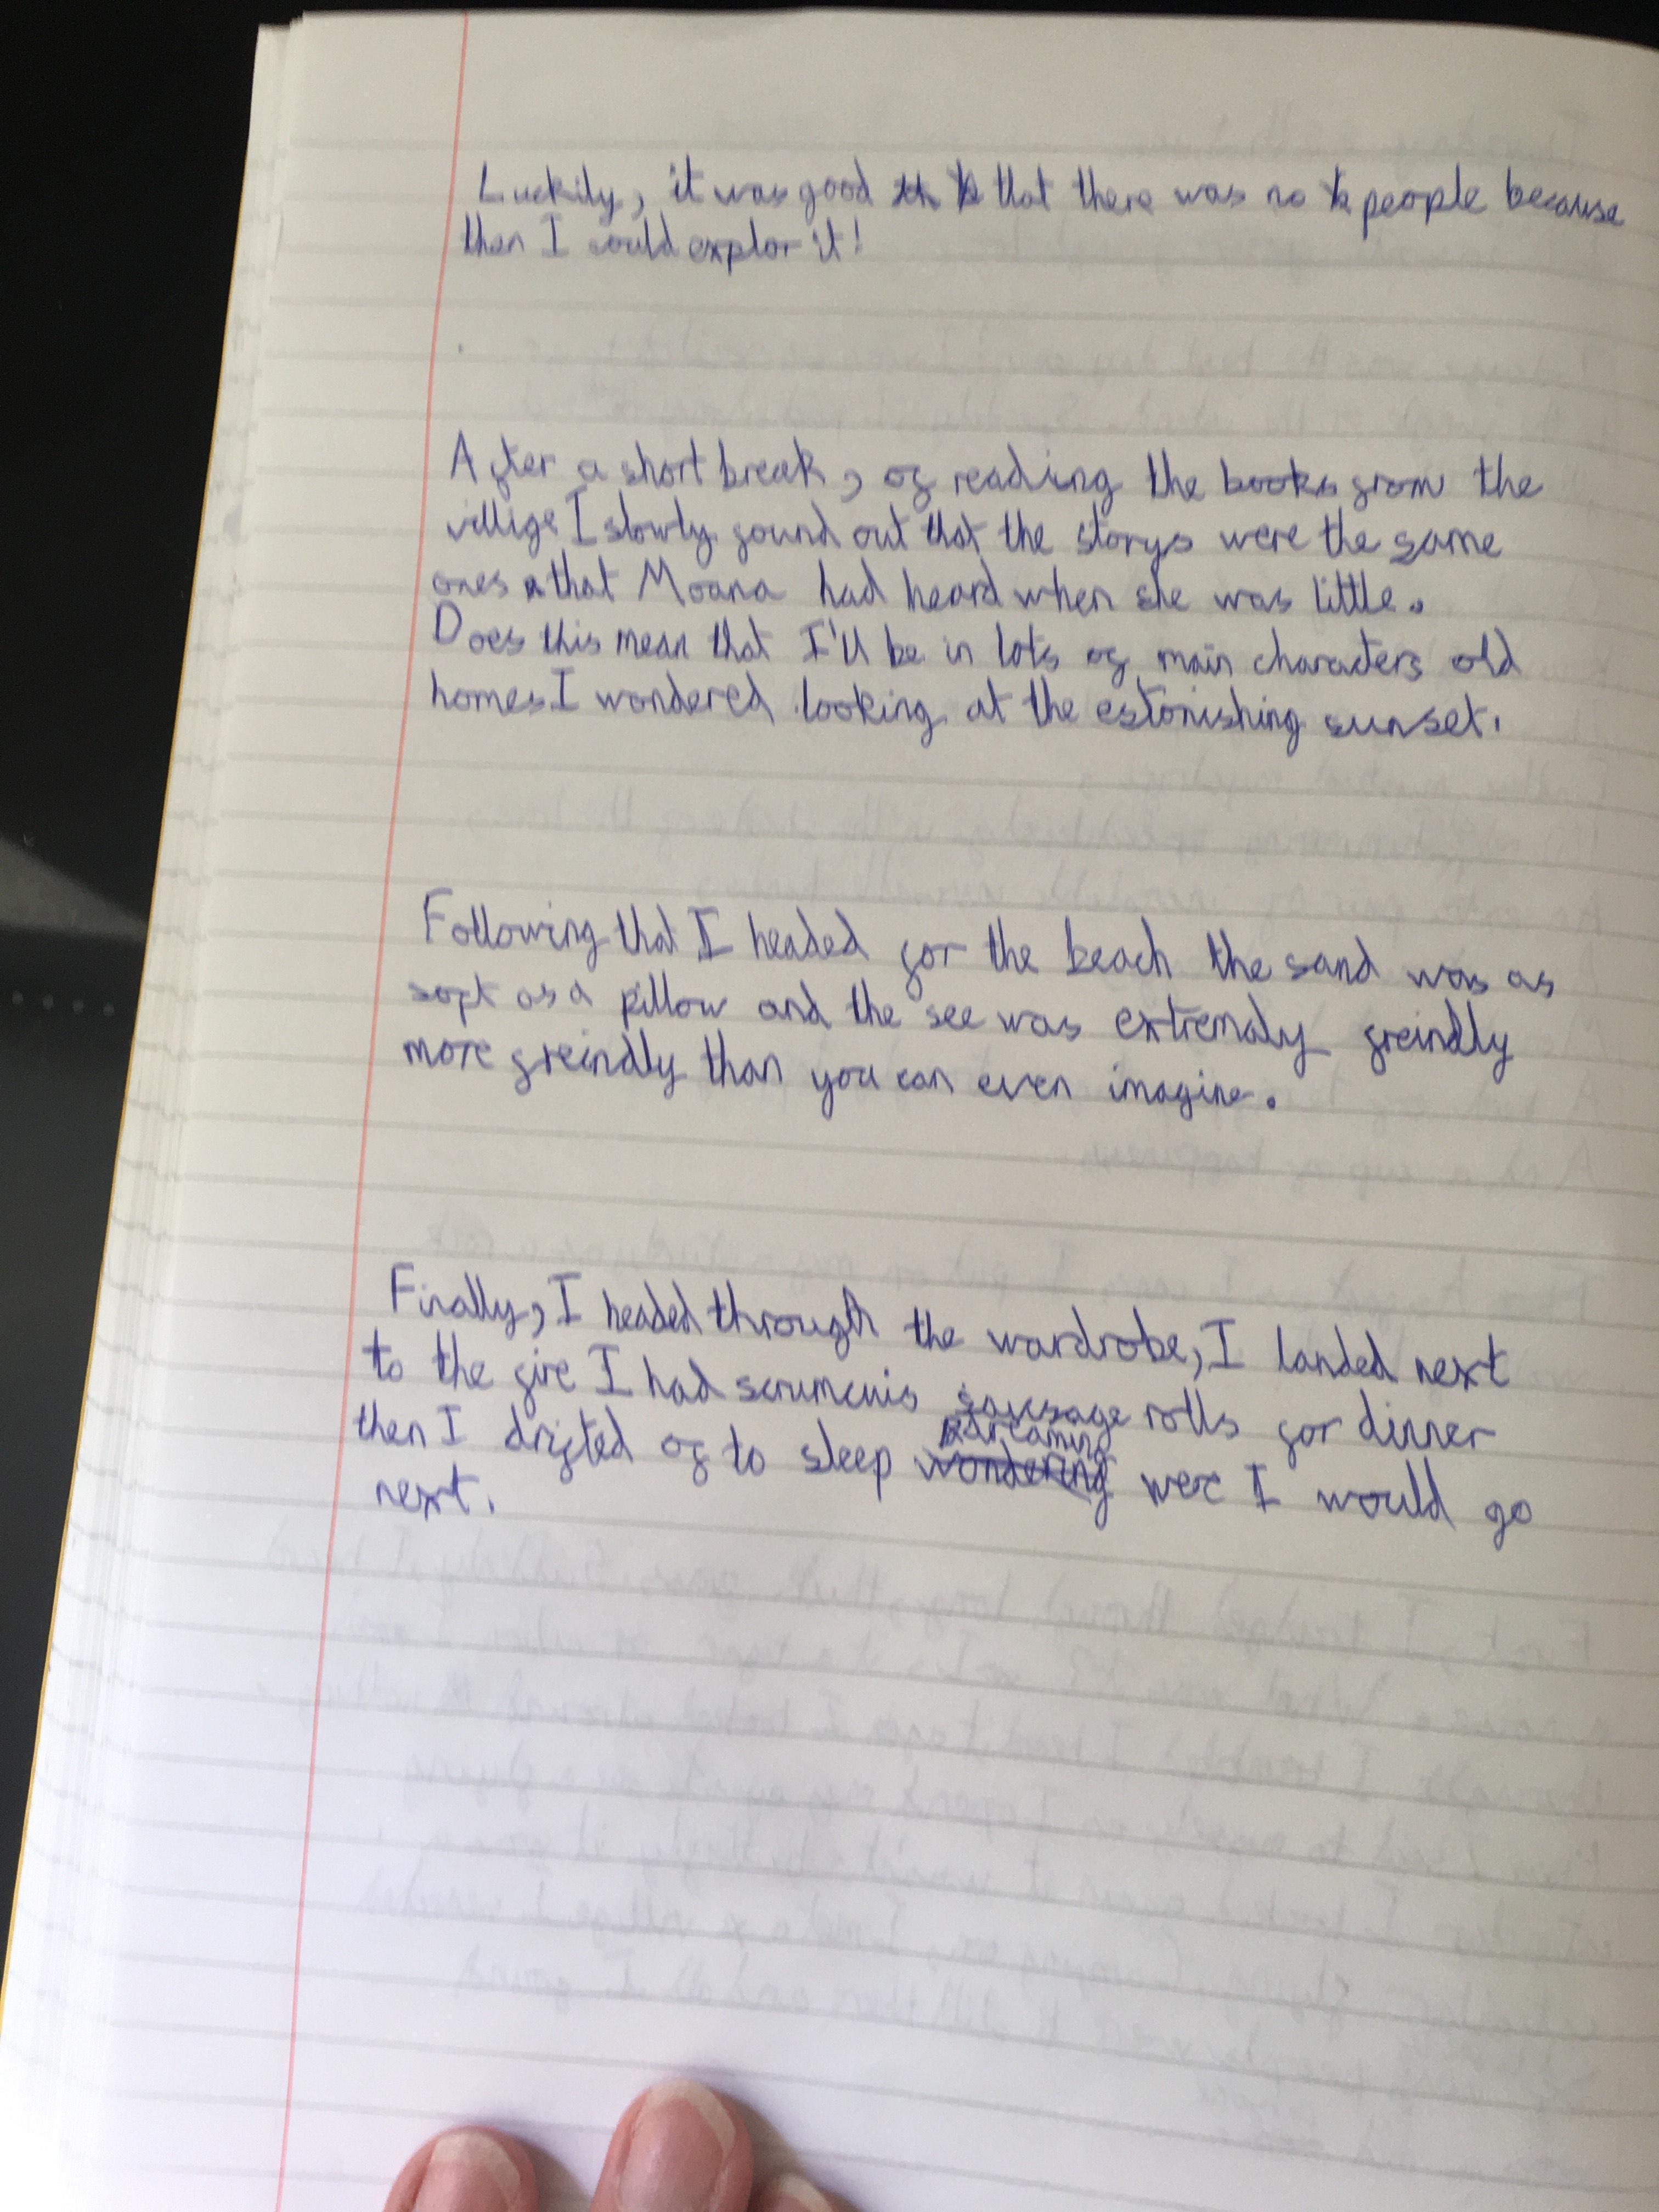 Luckily, it was good that there was no people because
then I could explor it!
After a short break, of reading the books from the
villige I slowly found out that the storys were the same
ones that Moana had heard when she was little.
Does this mean that I'll be in lots of main characters old
homes I wondered looking at the estonishing sunset.
Following that I headed for the beach the sand was as
soft as a pillow and the see was extremaly freindly
more freindly than you can even imagine.
Finally, I headed through the wardrobe, I landed next
to the fire I had scrumcuis sausage rolls for dinner
then I drifted of to sleep dreaming wer I would go
next.